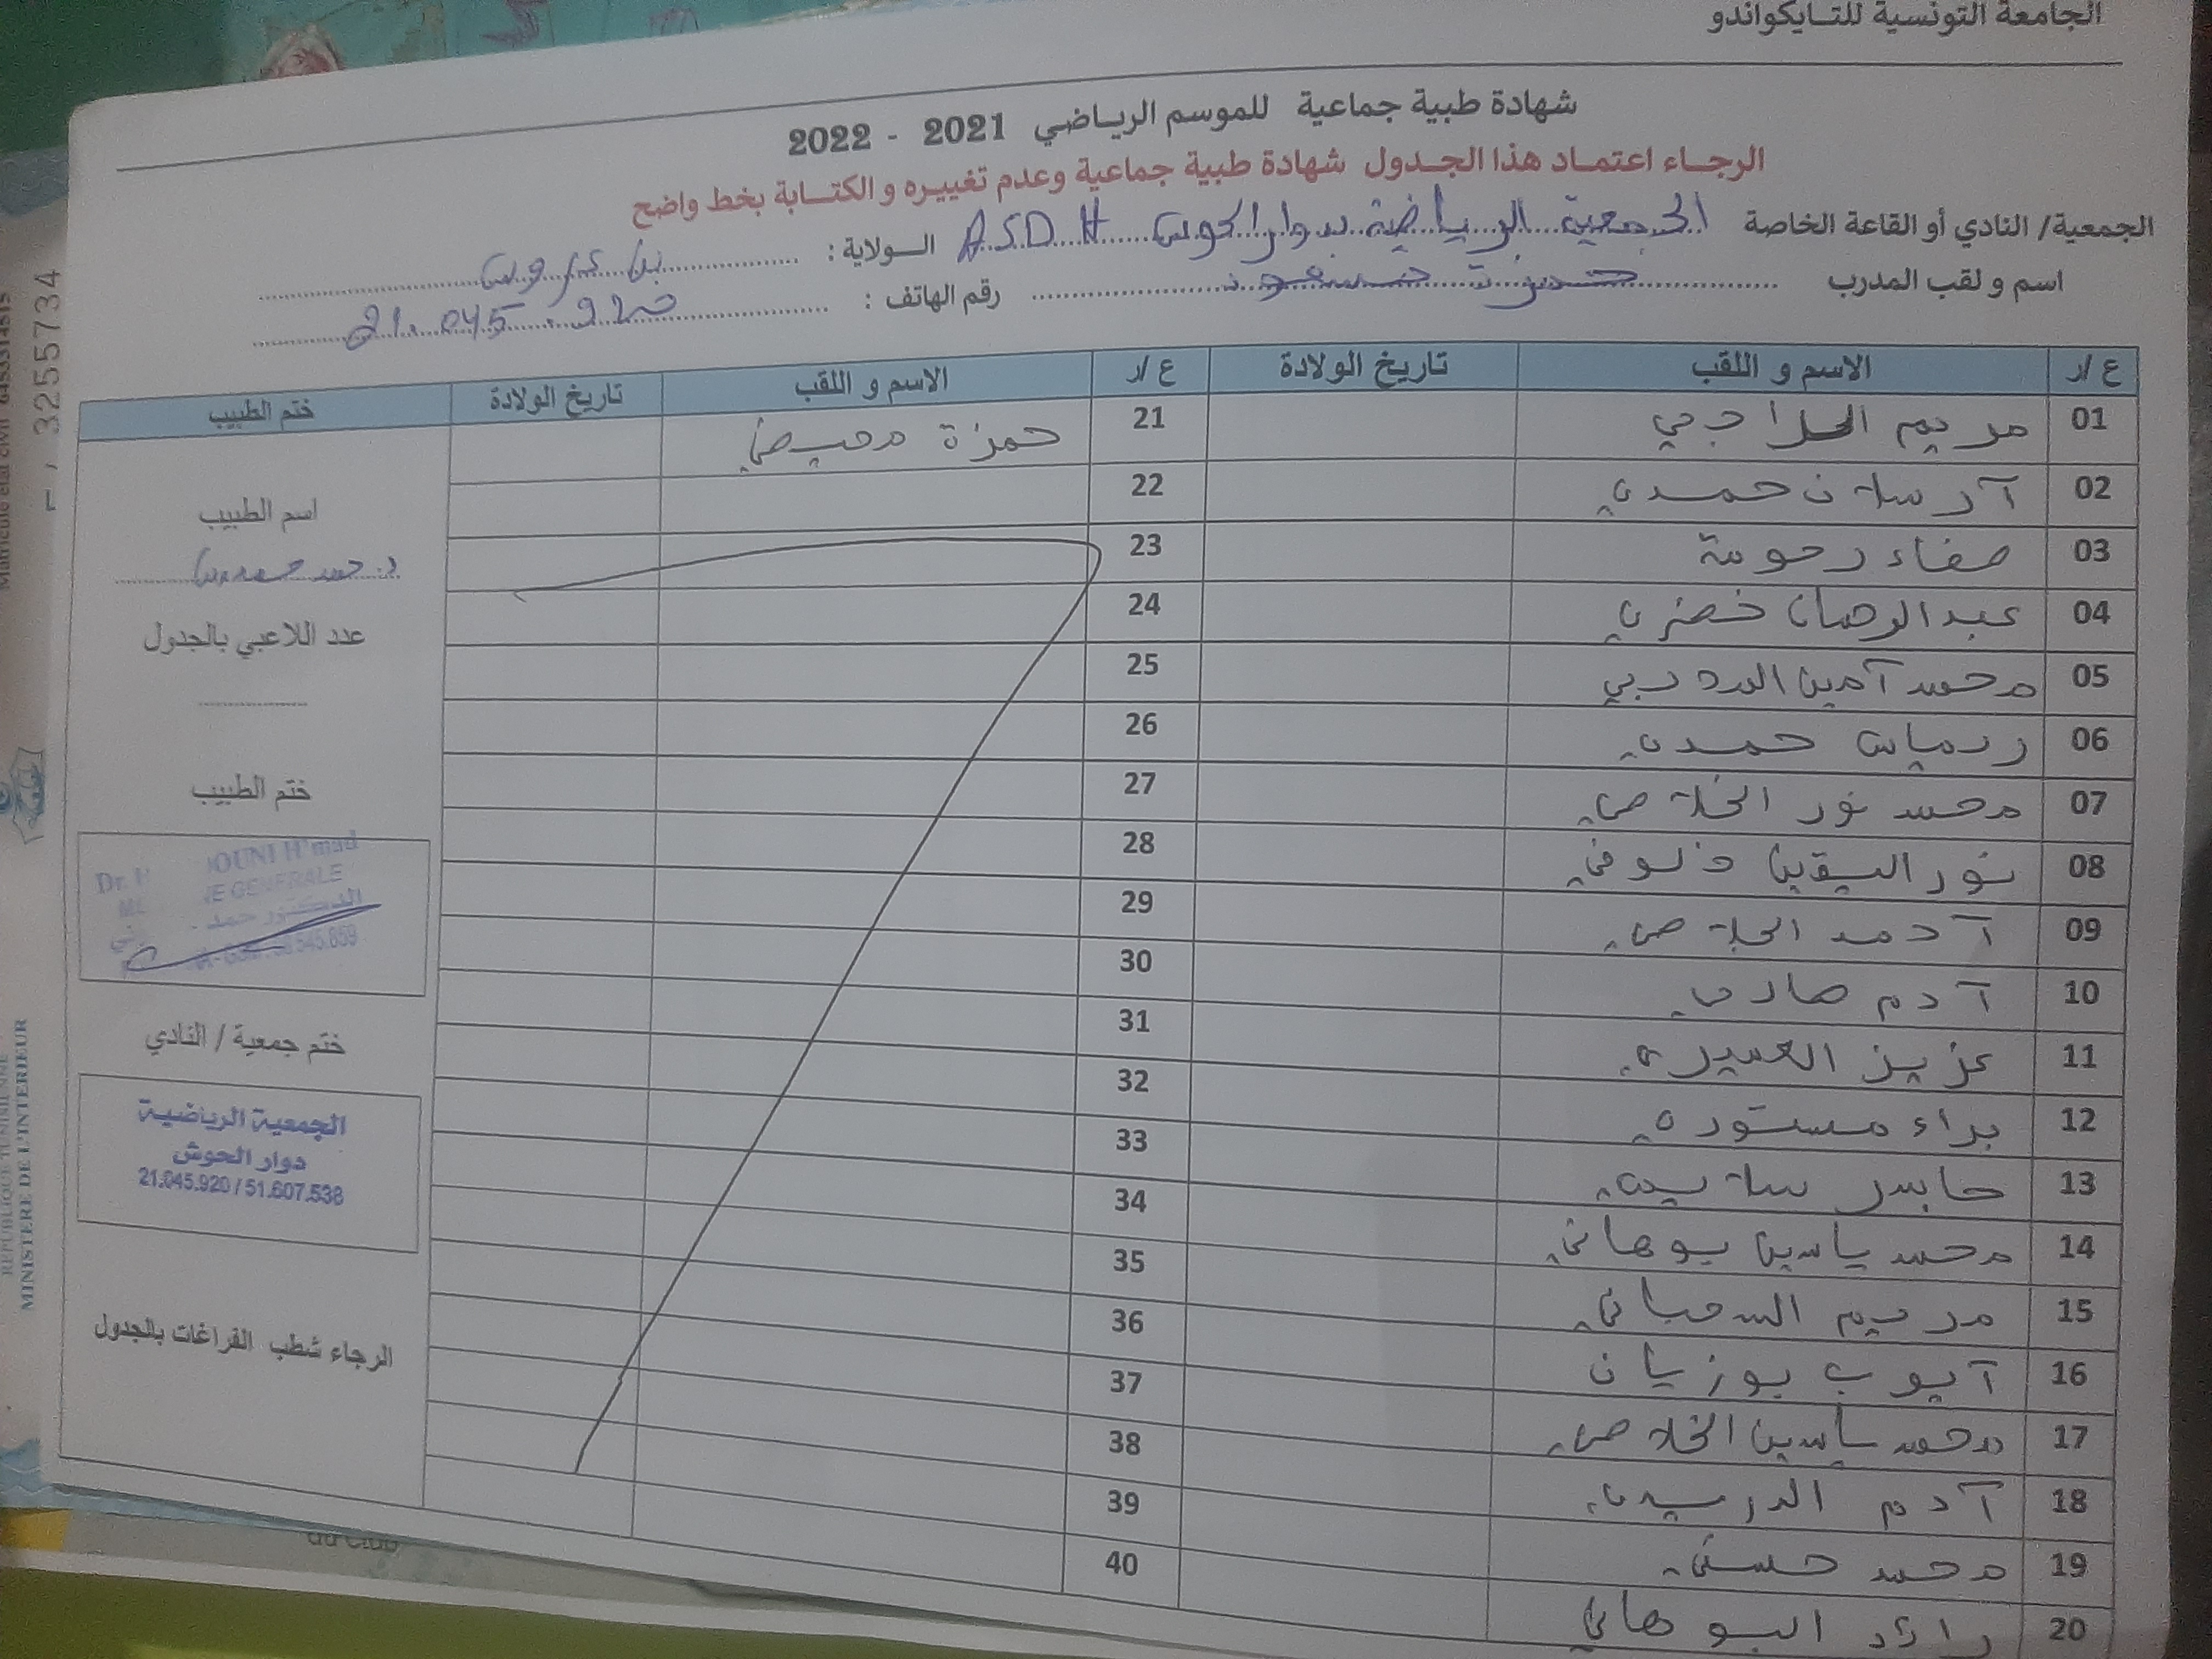 الجامعة التونسية للتايكواندو
شهادة طبية جماعية للموسم الرياضي 2021 - 2022
الرجاء اعتماد هذا الجدول شهادة طبية جماعية وعدم تغييره والكتابة بخط واضح
الجمعية/ النادي أو القاعة الخاصة الجمعية الرياضية بدوار الحوش A.S.D.H
الولاية : بن عروس
اسم و لقب المدرب
رقم الهاتف : 21.045.920
ع/ر الاسم و اللقب تاريخ الولادة ع/ر الاسم و اللقب تاريخ الولادة ختم الطبيب
01 مريم الحلاجي
02 آرسلان حمدي
03 صفاء رحومة
04 عبد الرحمان خضري
05 محمد آمين
06 ريماس حمدي
07 محمد نور الخلاصي
08 نور اليقين
09
10 آدم
11 عزيز
12 براء مستوري
13
14 محمد ياسين بوهاني
15 مريم
16 آيوب بوزيان
17 محمد ياسين الخلاصي
18 آدم الدريدي
19 محمد حسني
20 رائد البوهاني
21 حمزة
22
23
24
25
26
27
28
29
30
31
32
33
34
35
36
37
38
39
40
اسم الطبيب
د. حمد
عدد اللاعبي بالجدول
ختم الطبيب
Dr. H OUNI H'mad
GENERALE
الدكتور حمد
545.859
ختم جمعية / النادي
الجمعية الرياضية
دوار الحوش
21.045.920 / 51.607.538
الرجاء شطب الفراغات بالجدول
32555734
MINISTERE DE L'INTERIEUR